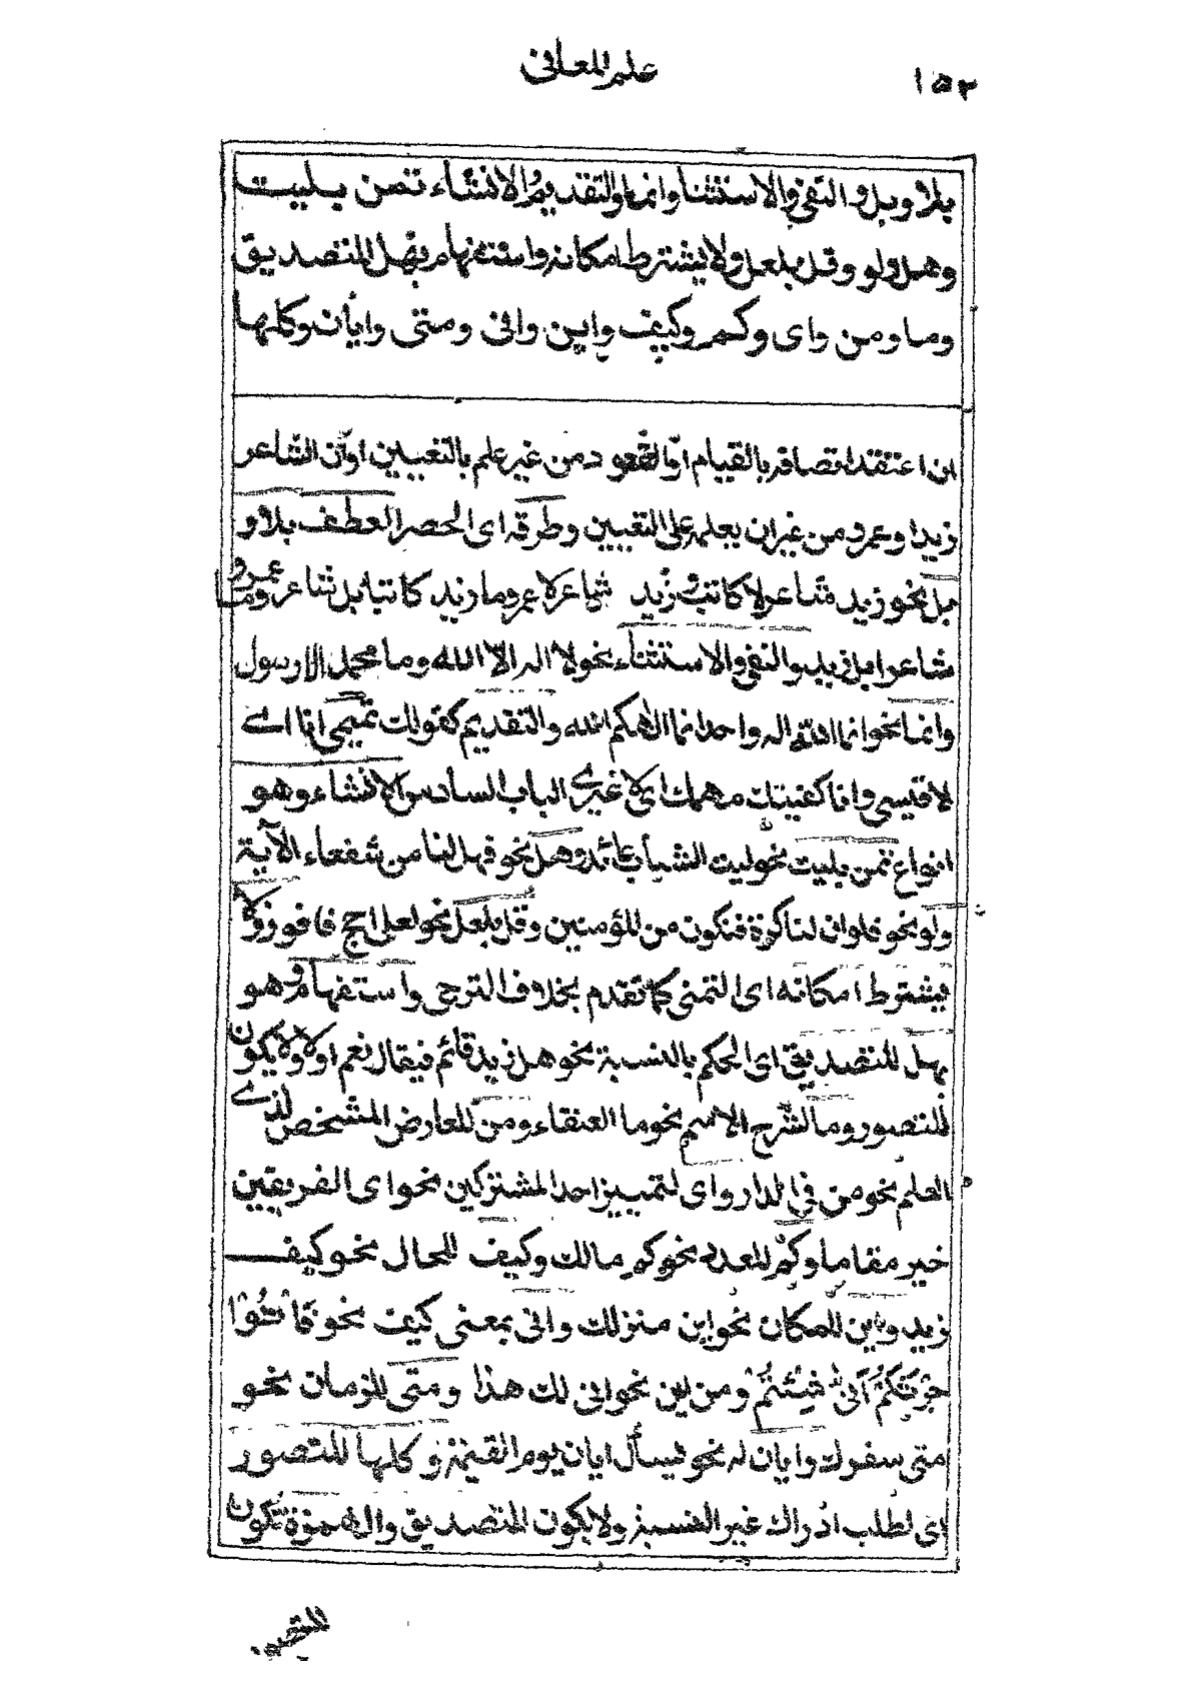 ١٥٢
علم المعانى
بلا وبل و النفي والاستثناء وانما والتقديم الانشاء تمن بليت
وهل ولو وقل بلعل ولا يشترط امكانه واستفهام بهل للتصديق
وما ومن واى وكم وكيف واين وانى ومتى وايان وكلها
ان اعتقد اتصافه بالقيام او القعود من غير علم بالتعيين او ان الشاعر
زيد او عمرو من غير ان يعلمه على التعيين وطرقه اى الحصر العطف بلا و
بل نحو زيد شاعر لا كاتب و زيد شاعر لا عمرو وما زيد كاتبا بل شاعر وما عمرو
شاعرا بل زيد والنفي والاستثناء نحو لا اله الا الله وما محمد الا رسول
وانما نحو انما الله اله واحد انما الهكم الله والتقديم كقولك تميمى انا اے
لا قيسى وانا كفيتك مهمك اى لا غيرى الباب السادس الانشاء وهو
انواع تمن بليت نحو ليت الشباب عائد وهل نحو فهل لنا من شفعاء الآية
ولو نحو فلو ان لنا كرة فنكون من المؤمنين وقل بلعل نحو لعلى احج فافوز ولا
يشترط امكانه اى التمنى كما تقدم بخلاف الترجى واستفهام وهو
بهل للتصديق اى الحكم بالنسبة نحو هل زيد قائم فيقال نعم او لا ولا يكون
للتصور وما لشرح الاسم نحو ما العنقاء ومن للعارض المشخص لذے
العلم نحو من فى الدار واى لتمييز احد المشتركين نحو اى الفريقين
خير مقاما وكم للعدد نحو كم مالك وكيف للحال نحو كيف
زيد واين للمكان نحو اين منزلك وانى بمعنى كيف نحو فَأْتُوْا
حَرْثَكُمْ اَنّٰى شِئْتُمْ ومن اين نحو انى لك هذا ومتى للزمان نحو
متى سفرك وايان له نحو يسأل ايان يوم القيمة وكلها للتصور
اى لطلب ادراك غير النسبة ولا يكون للتصديق والهمزة تكون
للتصديق